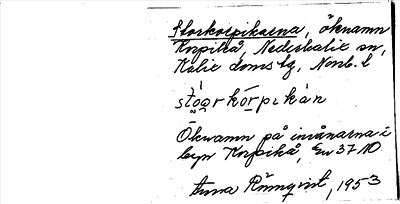 Storkorpikarna, öknamn
Korpikå, Nederkalix sn,
Kalix doms. tg, Norrb. l
stóorkórpikán
Öknamn på invånarna i
byn Korpikå, Eu 3710
Anna Rönnqvist, 1953